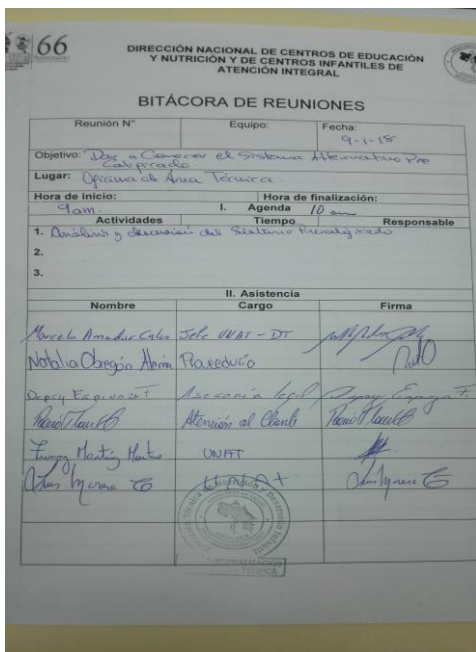 66
DIRECCIÓN NACIONAL DE CENTROS DE EDUCACIÓN
Y NUTRICIÓN Y DE CENTROS INFANTILES DE
ATENCIÓN INTEGRAL
BITÁCORA DE REUNIONES
Reunión N° Equipo: Fecha:
9-1-18
Objetivo: Dar a Conocer el Sistema Alternativo Pre
Calificado
Lugar: Oficina de Área Técnica
Hora de inicio: Hora de finalización:
9am I. Agenda 10 am
Actividades Tiempo Responsable
1. Análisis y discusión del Sistema Precalificado
2.
3.
II. Asistencia
Nombre Cargo Firma
Marcela Amador Jefe UNAT - DT
Natalia Obregón Proveeduría
Espinoza F Asesoría legal Espinoza F
Atención al Cliente
UNAT
Moreno Moreno
Desarrollo Infantil